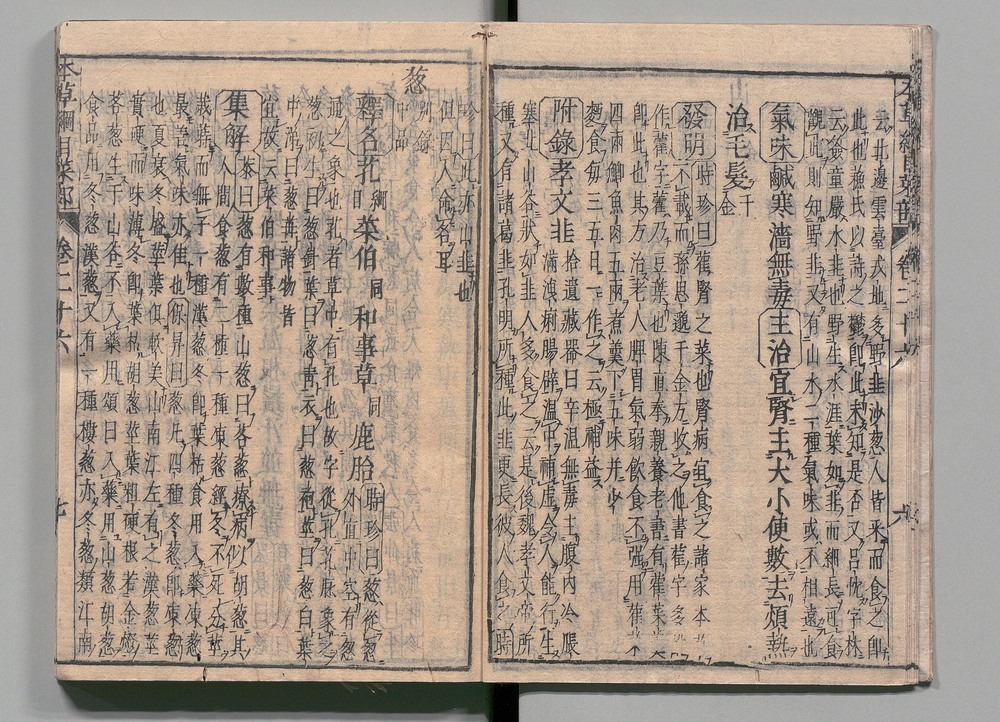 云北邊雲臺戍地多野韭沙葱人皆采而食之卽
此也蘓氏以詩之鬱卽此未知是否又呂忱字林
云䔠音嚴水韭也野生水涯葉如韭而細長可食
觀此則知野韭又有山水二種氣味或不相遠也
氣味鹹寒濇無毒主治宜腎主大小便數去煩熱
治毛髮千金
發明時珍曰藿腎之菜也腎病宜食之諸家本
不載而孫思邈千金方收之他書藿字多
作藿字藿乃豆葉也陳直奉親養老書有藿菜
卽此也其方治老人脾胃氣弱飲食不强用藿
四兩鯽魚肉五兩煮羹下五味并少
麪食每三五日一作之云極補益
附錄孝文韭拾遺藏器曰辛温無毒主腹內冷脹
滿洩痢腸澼温中補虛令人能行生
塞北山谷狀如韭人多食之云是後魏孝文帝所
種又有諸葛韭孔明所種此韭更長彼人食之時
珍曰此亦山韭也
但因人命名耳
葱別錄
中品
釋名芤綱目菜伯同和事草同鹿胎時珍曰葱從
外直中空有葱
通之象也芤者草中有孔也故字從孔芤脉象之
葱初生曰葱針葉曰葱靑衣曰葱袍莖曰葱白葉
中涕曰葱苒諸物皆
宜故云菜伯和事
集解恭曰葱有數種山葱曰茖葱療病似胡葱其
人間食葱有二種一種凍葱經冬不死分莖
栽蒔而無子一種漢葱冬卽葉枯食用入藥凍葱
最善氣味亦佳也保昇曰葱凡四種冬葱卽凍葱
也夏衰冬盛莖葉俱軟美山南江左有之漢葱莖
實硬而味薄冬卽葉枯胡葱莖葉粗硬根若金燈
茖葱生于山谷不入藥用頌曰入藥用山葱胡葱
食品用冬葱漢葱又有一種樓葱亦冬葱類江南
本草綱目菜部 卷二十六
七